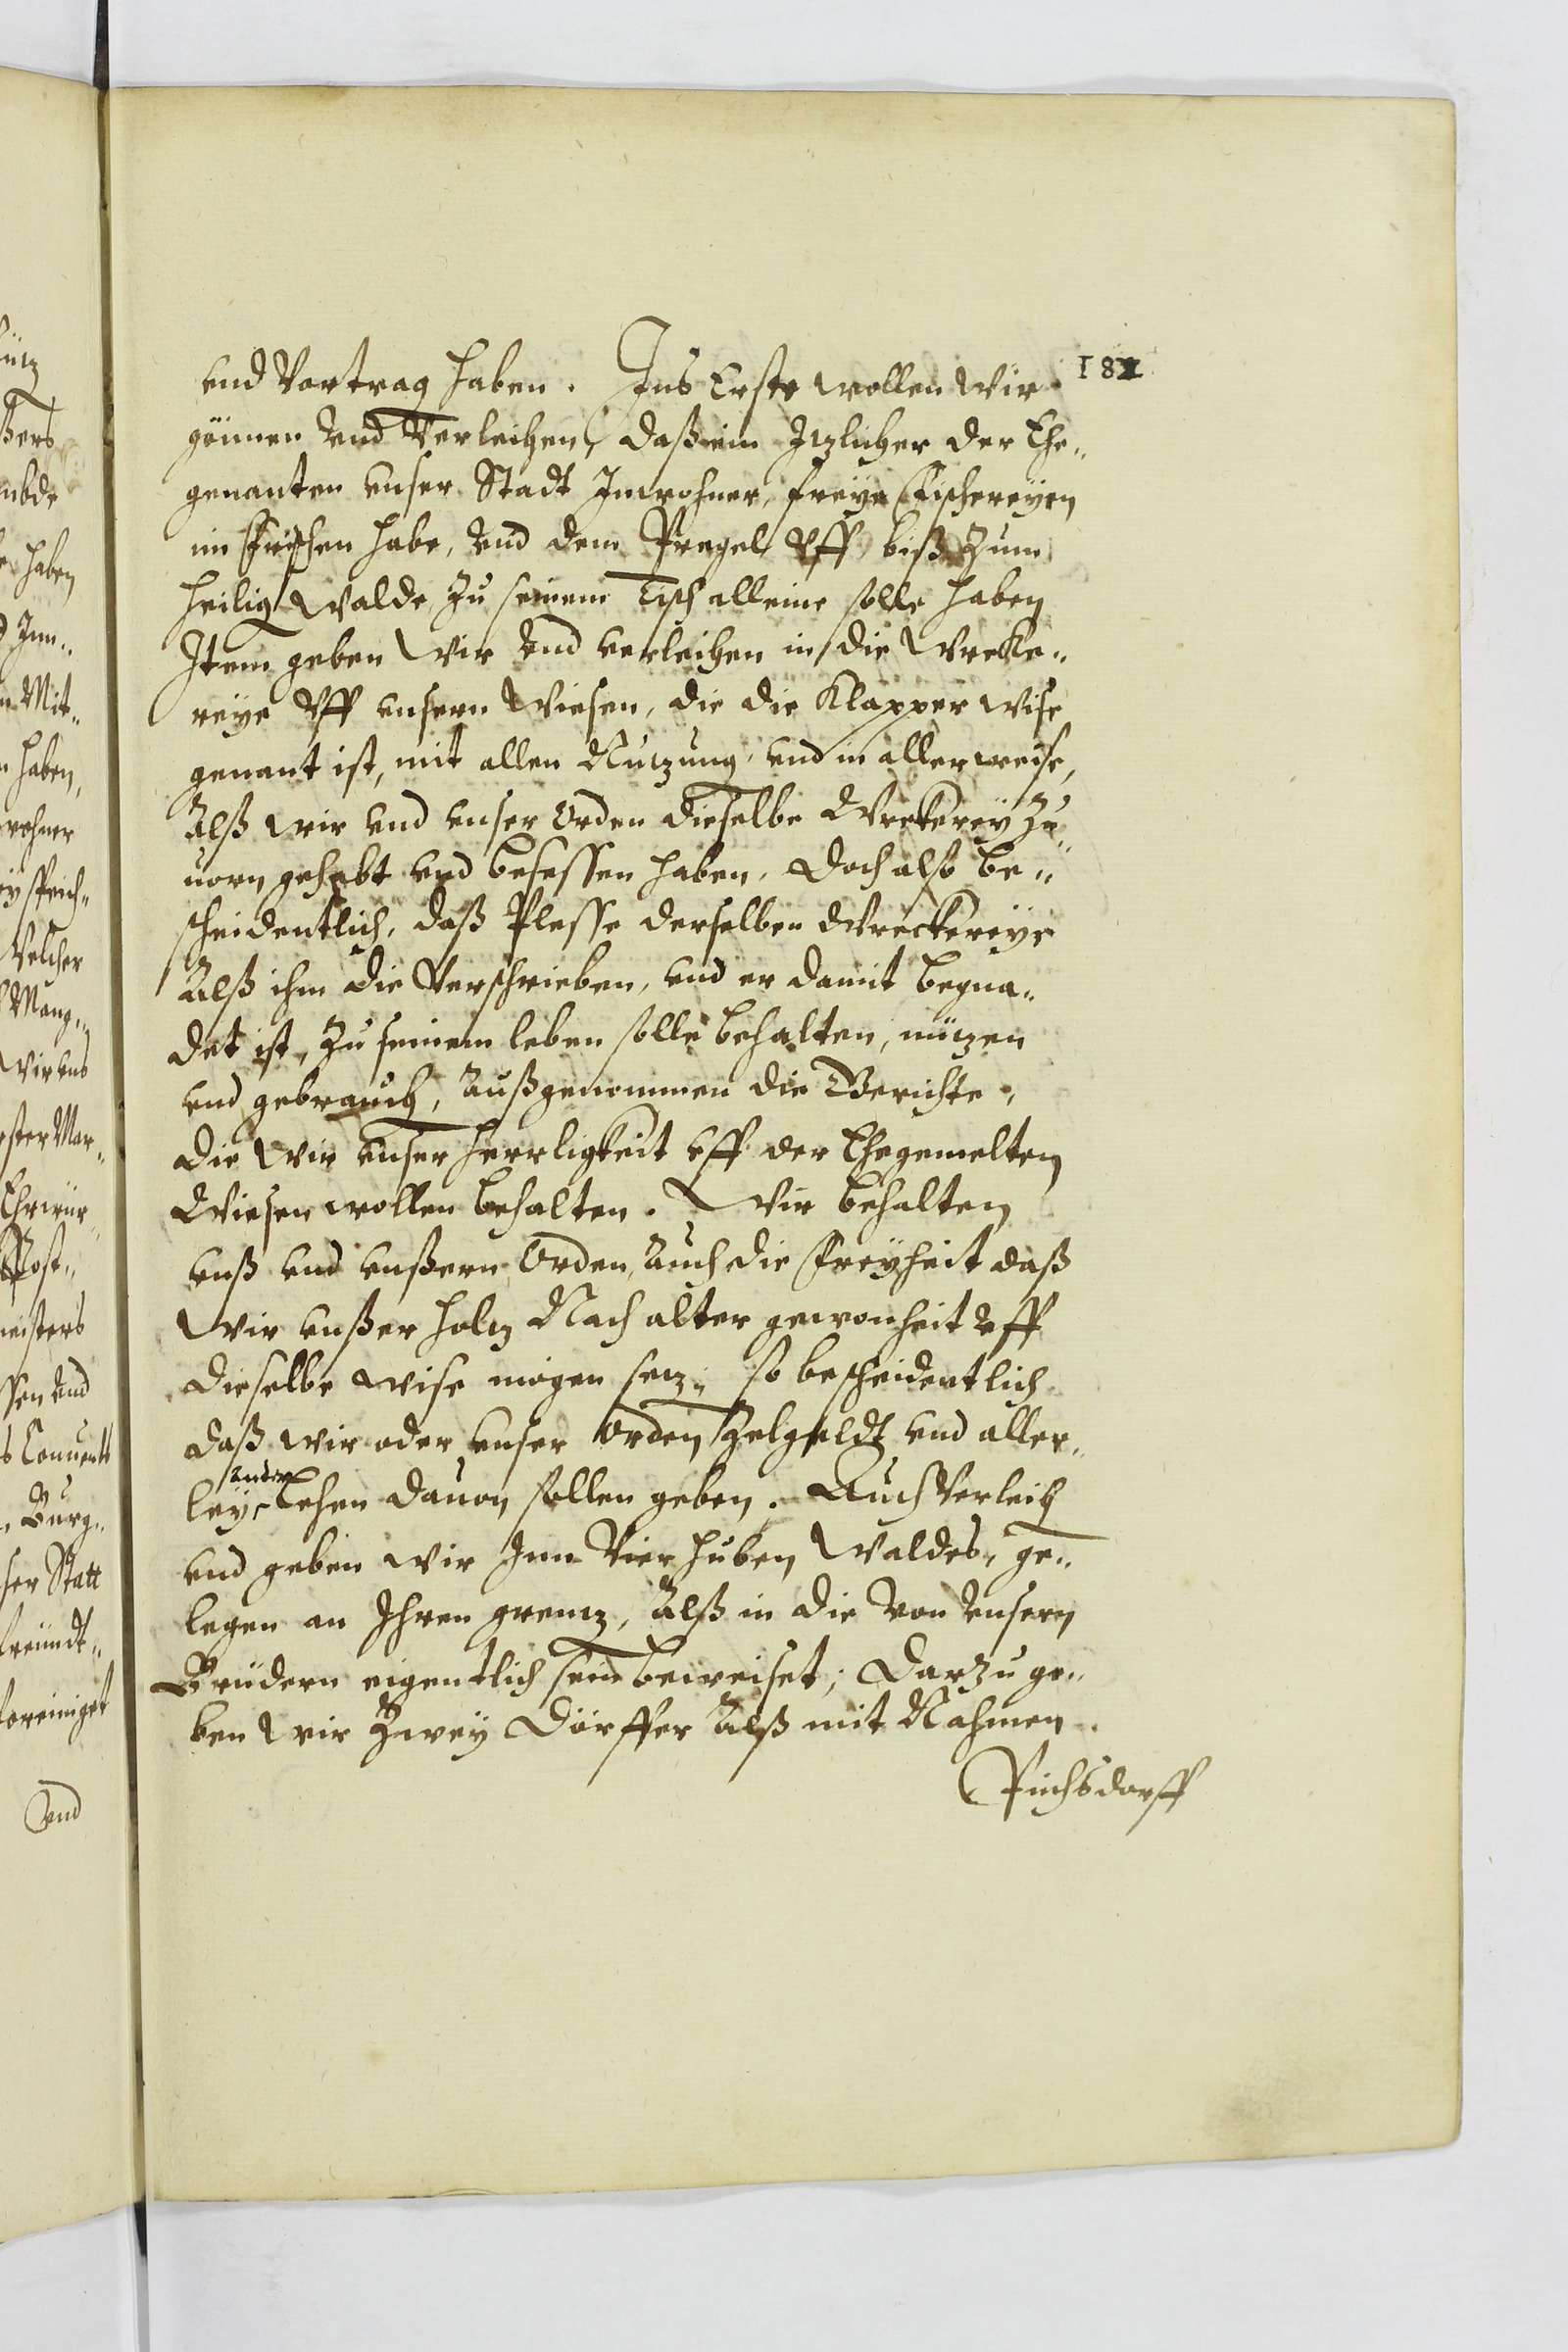 182
vnd Vortrag haben. Ins Erste wollen Wir
gönnen Vnd Verleihen, daß ein Itzlicher der Ehe„
genanten vnser Stadt Inwohner, freye Fischereyen
im Frischen habe, Vnd dem Pregel Vff, biß zum
heilig Walde, zu seinem Tisch alleine solle haben
Item geben Wir Vnd verleihen in die Wrekke„
reye Vff vnsern Wiesen, die die Klapper Wise
genant ist, mit allen Nutzung vnd in aller weise,
Alß wir vnd vnser Orden dieselbe Wrekerey zu„
uorn gehabt vnd besessen haben, Doch also be„
scheidentlich, daß Plesse derselben Wreckereye
Alß ihm die Verschrieben, vnd er damit begna„
det ist, zu seinem leben solle behalten, nützen
vnd gebrauch, Außgenommen die Gerichte,
die Wir vnser herrligkeit vff der Ehegemelten
Wiesen wollen behalten. Wir behalten
vnß vnd vnßern Orden, Auch die Freyheit daß
Wir vnßer holtz Nach alter gewonheit Vff
dieselbe Wise mögen setz„ so bescheidentlich
daß wir oder vnser Orden Zelgeldt vnd aller„
ander
ley Lehen dauon sollen geben. Auch Verleih
vnd geben wir Inn Vier huben Waldes, ge„
legen an Ihren grentz, Alß in die Von Vnsern
Brüdern eigentlich sein beweiset; Darzu ge„
ben Wir Zwey Dörffer Alß mit Nahmen